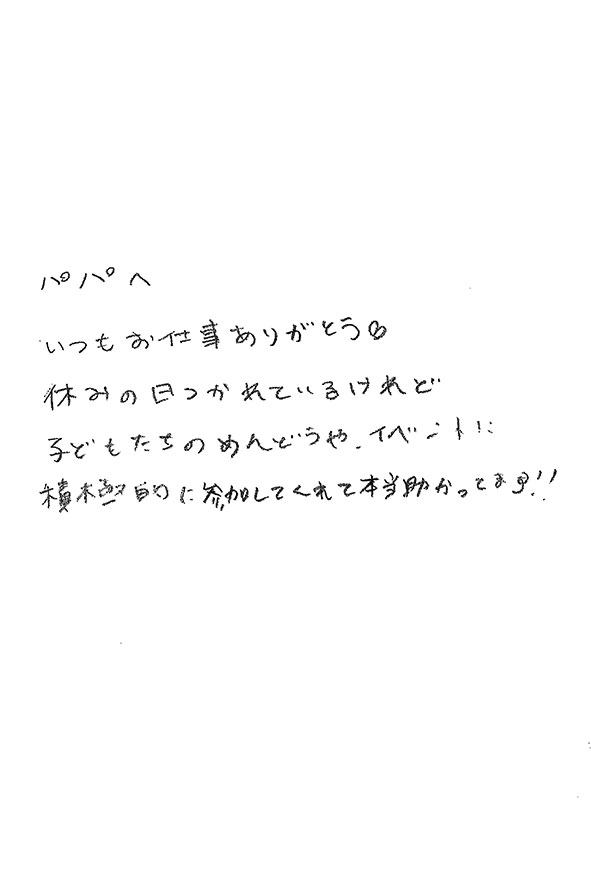 パパへ
いつもお仕事ありがとう♡
休みの日つかれているけれど
子どもたちのめんどうや、イベントに
積極的に参加してくれて本当助かってます!!